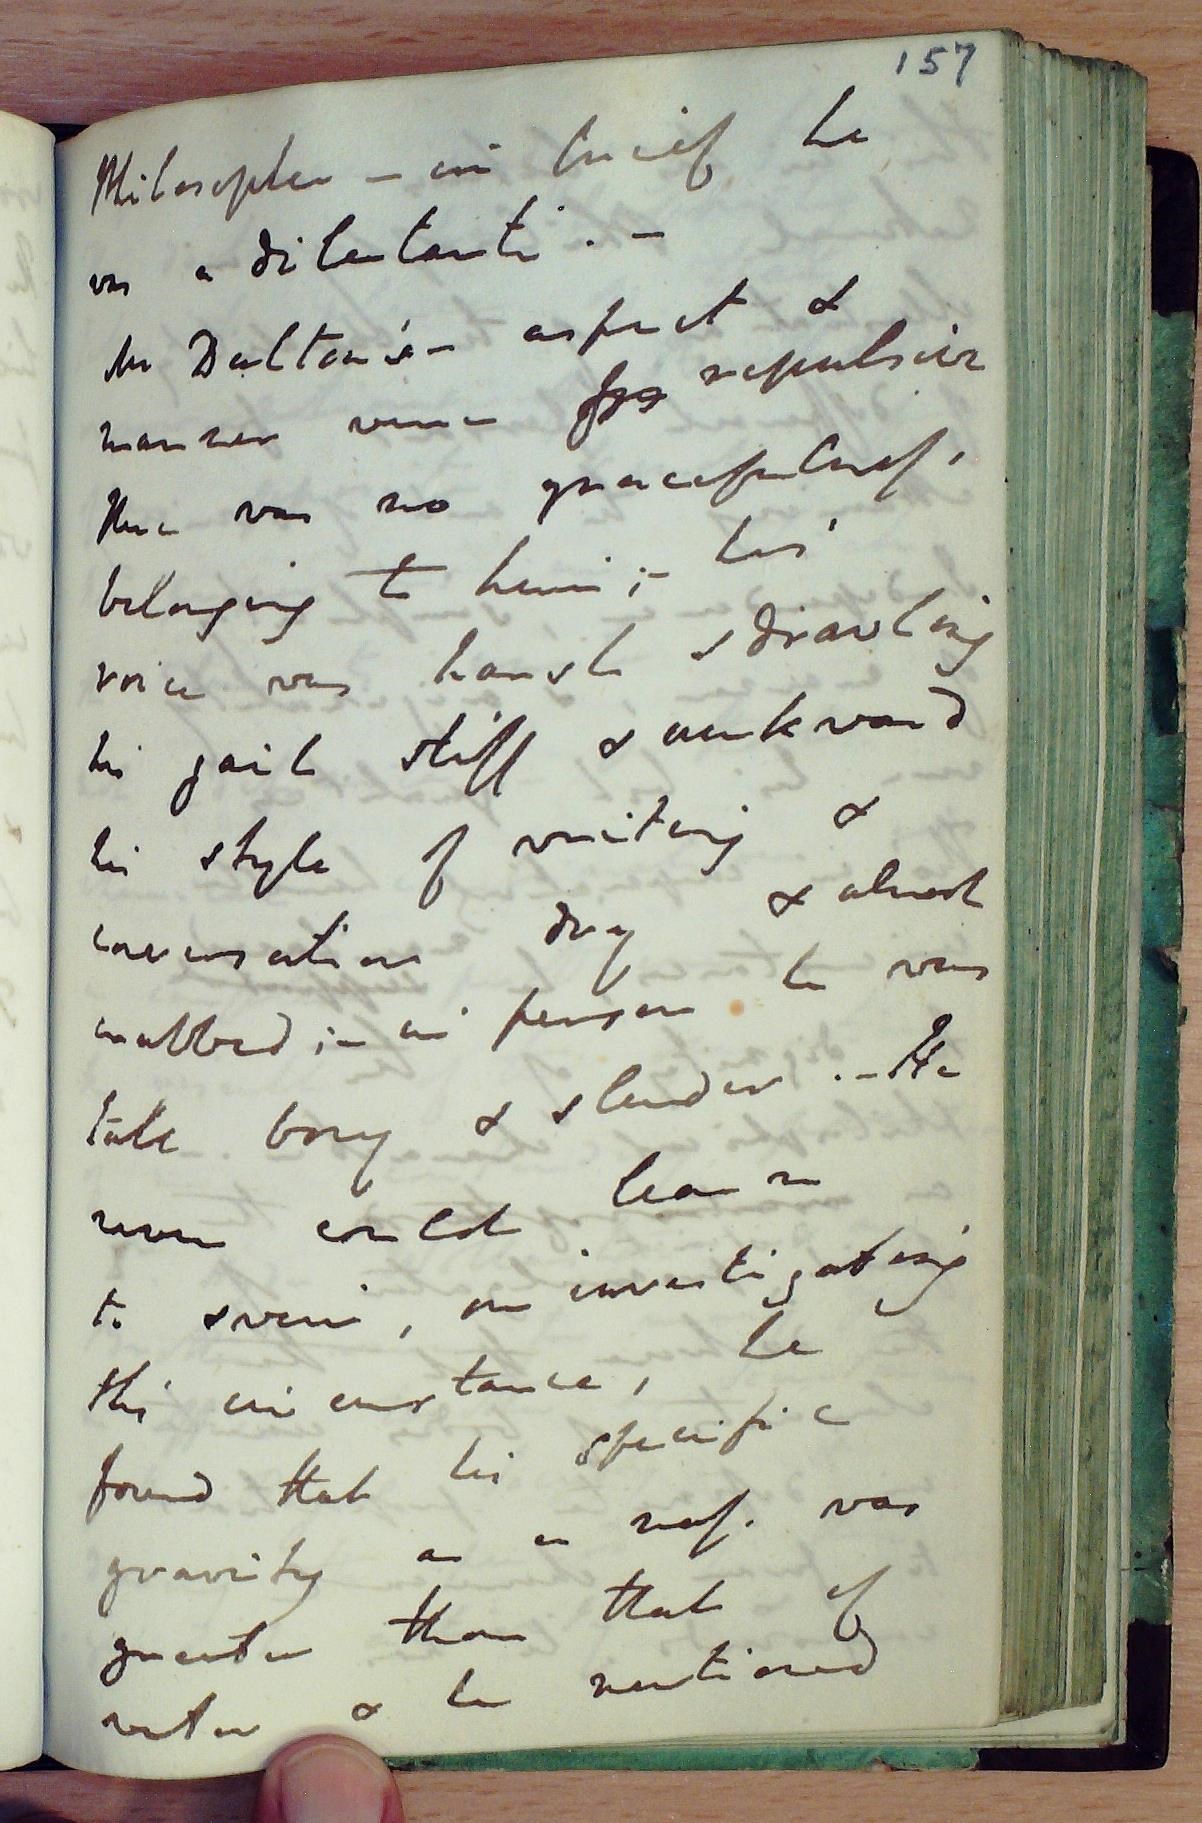 157
Philosopher - in brief he
was a diletanti. -
Mr Dalton's - aspect &
manner were repulsive
There was no gracefulness,
belonging to him; - his
voice was harsh & drawling
his gait stiff & awkward
his style of writing &
conversation dry & almost
crabbed; - in person he was
tall bony & slender. - He
never could learn
to swim, on investigating
this circumstance, he
found that his specific
gravity as a mass was
greater than that of
water & he mentioned